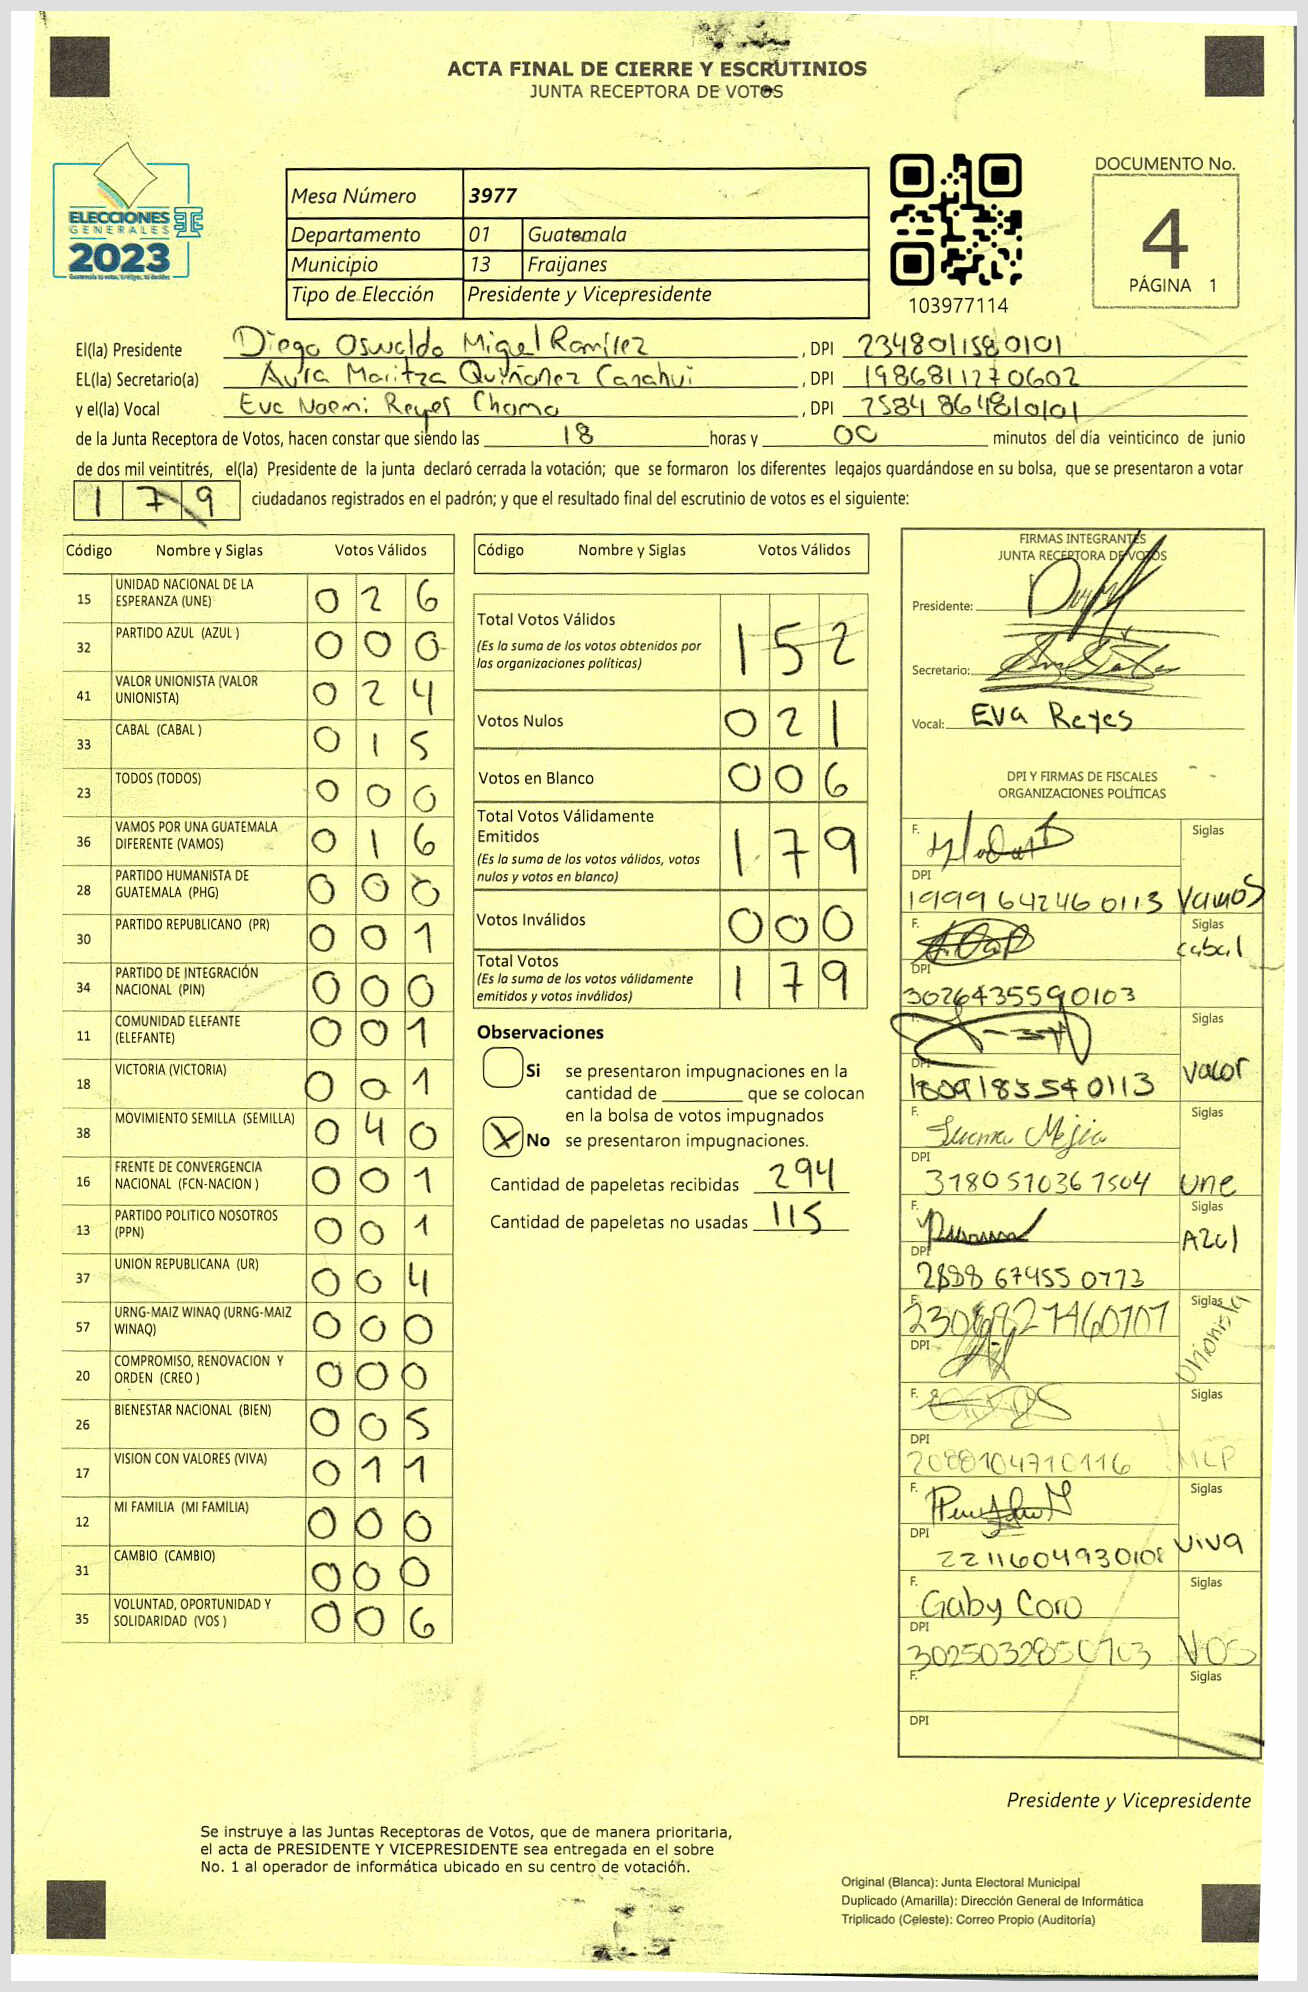 ACTA FINAL DE CIERRE Y ESCRUTINIOS
JUNTA RECEPTORA DE VOTOS
ELECCIONES
GENERALES
2023
Mesa Número 3977
Departamento 01 Guatemala
Municipio 13 Fraijanes
Tipo de Elección Presidente y Vicepresidente
103977114
DOCUMENTO No.
4
PÁGINA 1
El(la) Presidente Diego Oswaldo Miguel Ramírez , DPI 2348011580101
EL(la) Secretario(a) Aura Maritza Quiñonez Canahui , DPI 1986811270602
y el(la) Vocal Eva Noemi Reyes Chamo , DPI 2584864810101
de la Junta Receptora de Votos, hacen constar que siendo las 18 horas y 00 minutos del día veinticinco de junio
de dos mil veintitrés, el(la) Presidente de la junta declaró cerrada la votación; que se formaron los diferentes legajos guardándose en su bolsa, que se presentaron a votar
179 ciudadanos registrados en el padrón; y que el resultado final del escrutinio de votos es el siguiente:
Código Nombre y Siglas Votos Válidos
15 UNIDAD NACIONAL DE LA
ESPERANZA (UNE) 026
32 PARTIDO AZUL (AZUL ) 000
41 VALOR UNIONISTA (VALOR
UNIONISTA) 024
33 CABAL (CABAL ) 015
23 TODOS (TODOS) 000
36 VAMOS POR UNA GUATEMALA
DIFERENTE (VAMOS) 016
28 PARTIDO HUMANISTA DE
GUATEMALA (PHG) 000
30 PARTIDO REPUBLICANO (PR) 001
34 PARTIDO DE INTEGRACIÓN
NACIONAL (PIN) 000
11 COMUNIDAD ELEFANTE
(ELEFANTE) 001
18 VICTORIA (VICTORIA) 001
38 MOVIMIENTO SEMILLA (SEMILLA) 040
16 FRENTE DE CONVERGENCIA
NACIONAL (FCN-NACION ) 001
13 PARTIDO POLITICO NOSOTROS
(PPN) 001
37 UNION REPUBLICANA (UR) 004
57 URNG-MAIZ WINAQ (URNG-MAIZ
WINAQ) 000
20 COMPROMISO, RENOVACION Y
ORDEN (CREO ) 000
26 BIENESTAR NACIONAL (BIEN) 005
17 VISION CON VALORES (VIVA) 011
12 MI FAMILIA (MI FAMILIA) 000
31 CAMBIO (CAMBIO) 000
35 VOLUNTAD, OPORTUNIDAD Y
SOLIDARIDAD (VOS ) 006
Código Nombre y Siglas Votos Válidos
Total Votos Válidos 152
(Es la suma de los votos obtenidos por
las organizaciones políticas)
Votos Nulos 021
Votos en Blanco 006
Total Votos Válidamente
Emitidos 179
(Es la suma de los votos válidos, votos
nulos y votos en blanco)
Votos Inválidos 000
Total Votos 179
(Es la suma de los votos válidamente
emitidos y votos inválidos)
Observaciones
Si se presentaron impugnaciones en la
cantidad de que se colocan
en la bolsa de votos impugnados
X No se presentaron impugnaciones.
Cantidad de papeletas recibidas 294
Cantidad de papeletas no usadas 115
FIRMAS INTEGRANTES
JUNTA RECEPTORA DE VOTOS
Presidente:
Secretario:
Vocal: Eva Reyes
DPI Y FIRMAS DE FISCALES
ORGANIZACIONES POLÍTICAS
F. Siglas
DPI
1999642460113 Vamos
F. Siglas
cabal
DPI
3026435590103
F. Siglas
DPI valor
1809183540113
F. Siglas
Mejia
DPI
3180510361504 une
F. Siglas
DPI Azul
F. Siglas
Unionista
DPI
F. Siglas
DPI
2088104710116 MLP
F. Siglas
DPI
2211604930108 viva
F. Siglas
Gaby Coro
DPI
3025032850103 VOS
F. Siglas
DPI
Presidente y Vicepresidente
Se instruye a las Juntas Receptoras de Votos, que de manera prioritaria,
el acta de PRESIDENTE Y VICEPRESIDENTE sea entregada en el sobre
No. 1 al operador de informática ubicado en su centro de votación.
Original (Blanca): Junta Electoral Municipal
Duplicado (Amarilla): Dirección General de Informática
Triplicado (Celeste): Correo Propio (Auditoría)